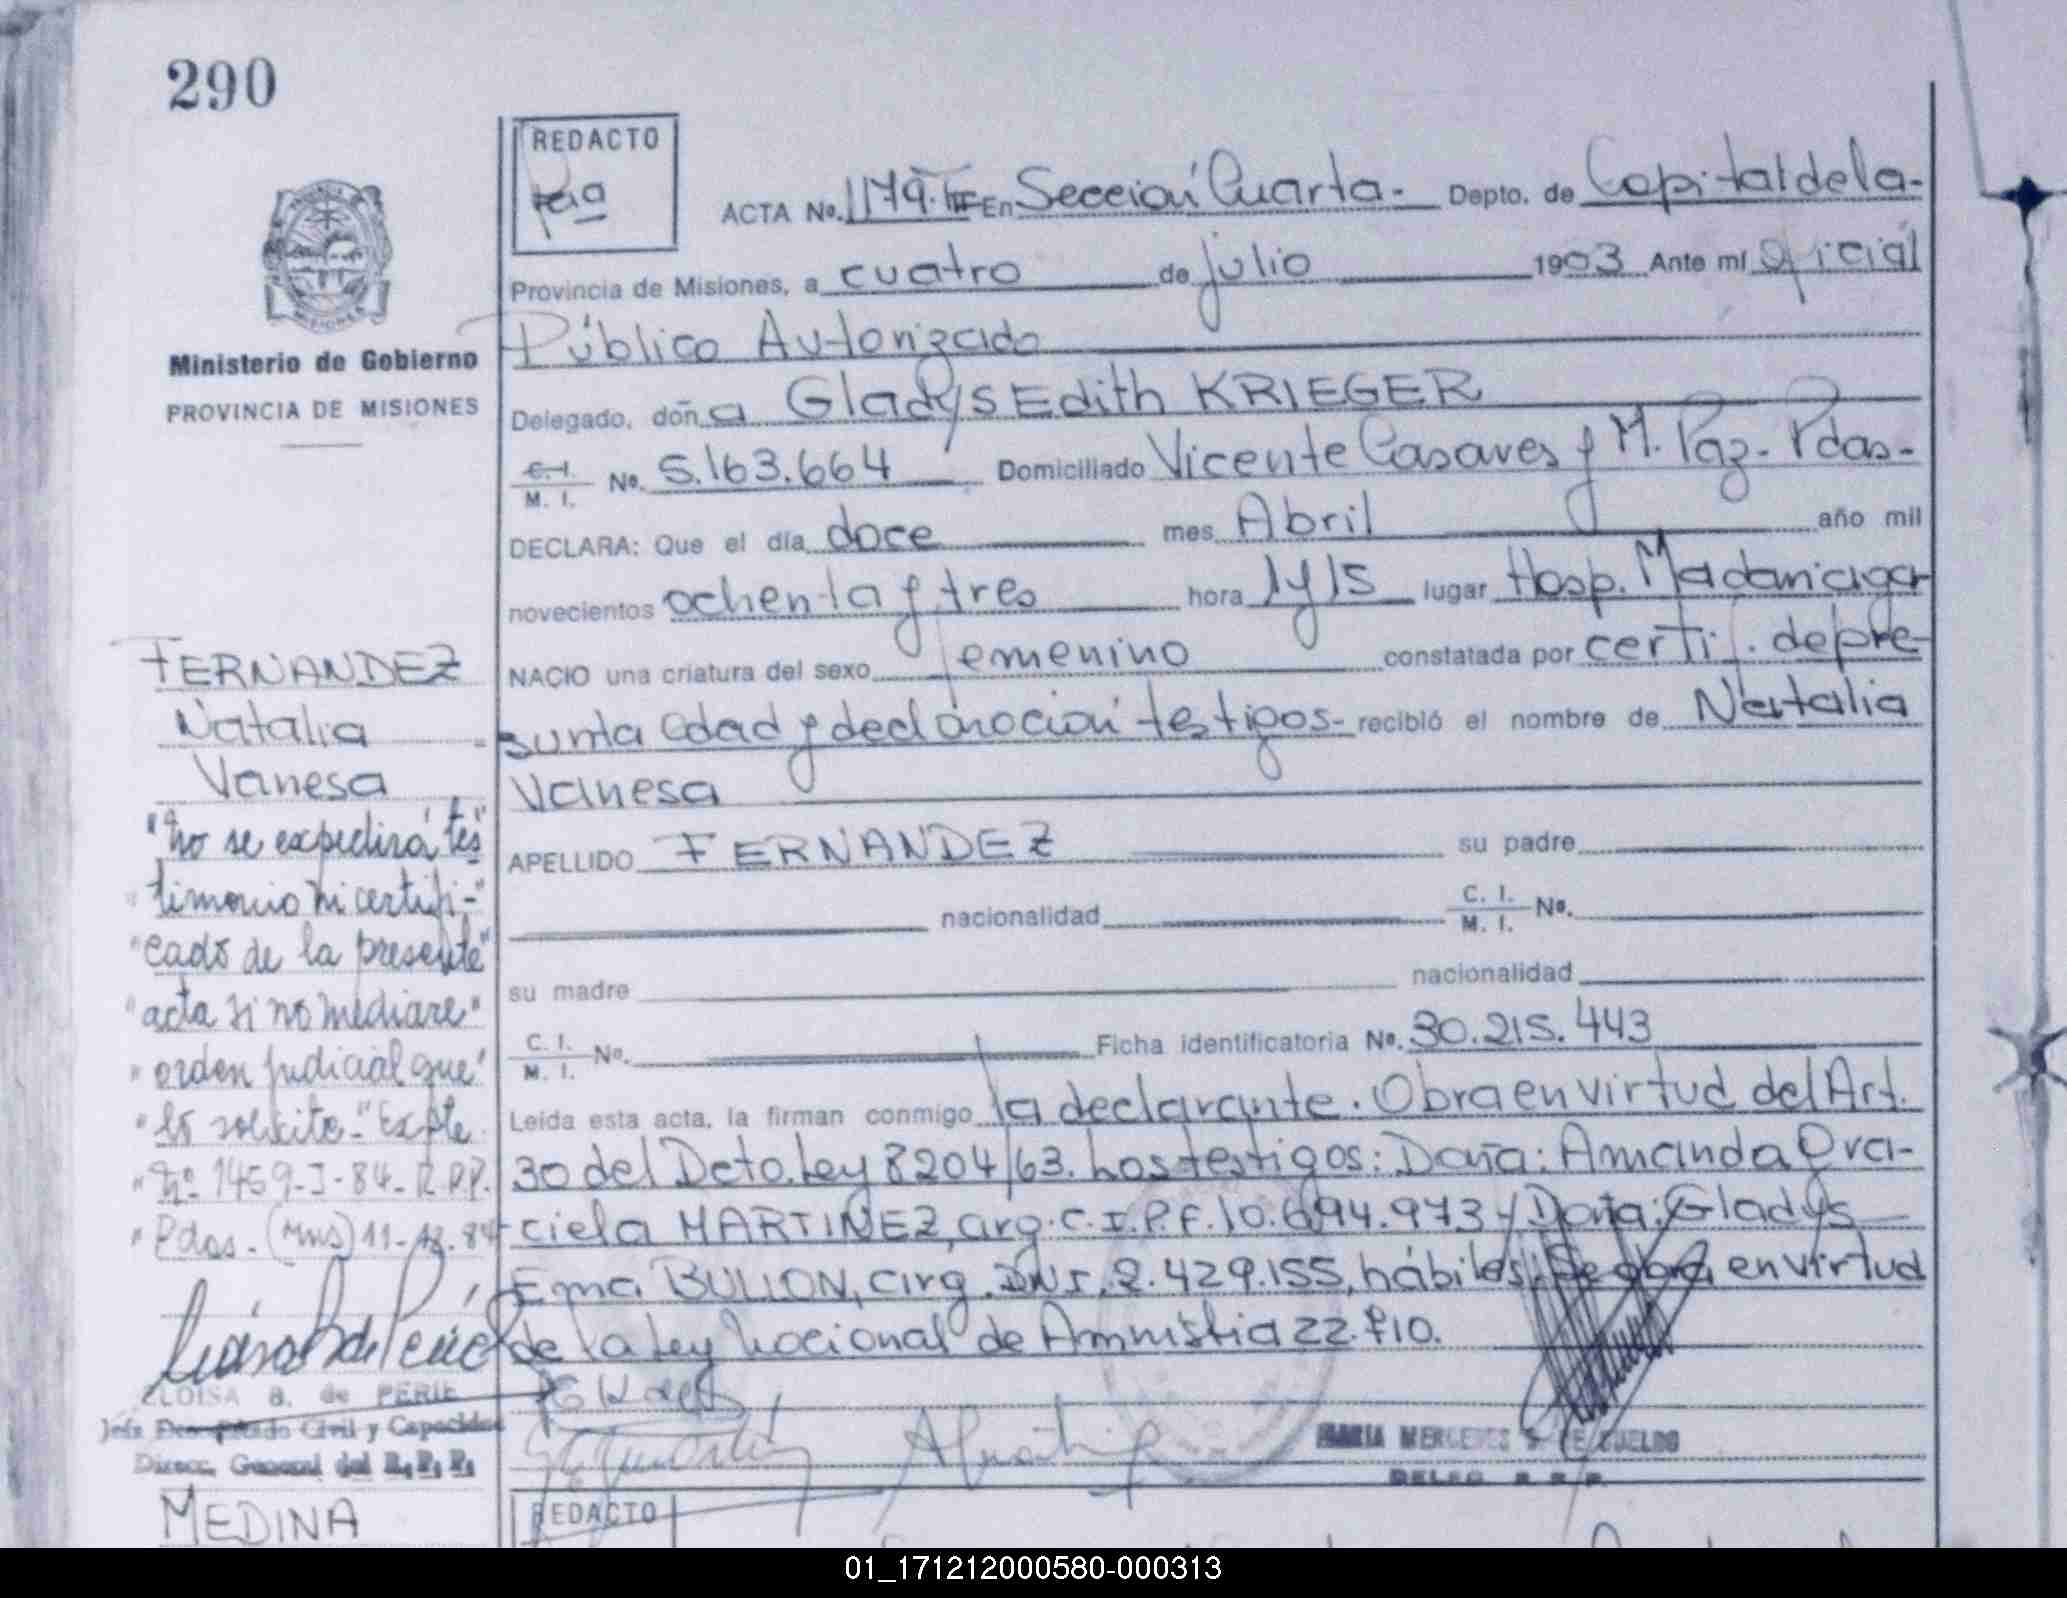 290
REDACTO
ACTA No. 1179. En Sección Cuarta.- Depto. de Capital de la-
Provincia de Misiones, a cuatro de julio 1983 Ante mí Oficial
Público Autorizado
Ministerio de Gobierno
PROVINCIA DE MISIONES
Delegado, doña Gladys Edith KRIEGER
C. I.
M. I. No. 5.163.664 Domiciliado Vicente Casares y M. Paz- Pdas-
DECLARA: Que el día doce mes Abril año mil
novecientos ochenta y tres hora 1 y 15 lugar Hosp. Madariaga
NACIO una criatura del sexo femenino constatada por certif. de pre-
sunta edad y declaración testigos- recibió el nombre de Natalia
Vanesa
APELLIDO FERNANDEZ su padre
nacionalidad C. I.
M. I. No.
su madre nacionalidad
C. I.
M. I. No. Ficha identificatoria No. 30.215.443
Leída esta acta, la firman conmigo la declarante. Obra en virtud del Art.
30 del Dcto. Ley 8204/63. Los testigos: Doña: Amanda Gra-
ciela MARTINEZ, arg. C.I.P.F. 10.694.973 y Doña: Gladys
Ema BULLON, arg. DNI. 2.429.155, hábiles. Se obra en virtud
de la Ley Nacional de Amnistia 22.510.
FERNANDEZ
Natalia
Vanesa
"No se expedirá tes
"timonio ni certifi-"
"cado de la presente"
"acta si no mediare"
"orden judicial que"
"lo solicite-" Expte.
"Nº 1459-I-84-R.P.P.
"Pdas.-(Mnes) 11-12-84
ELOISA B. de PERIE
Jefa Departado Civil y Capacidad
Direcc. General del R. P. P.
MARIA MERCEDES S. DE CUELDO
DELEG R. R. P.
MEDINA
REDACTO
01_171212000580-000313